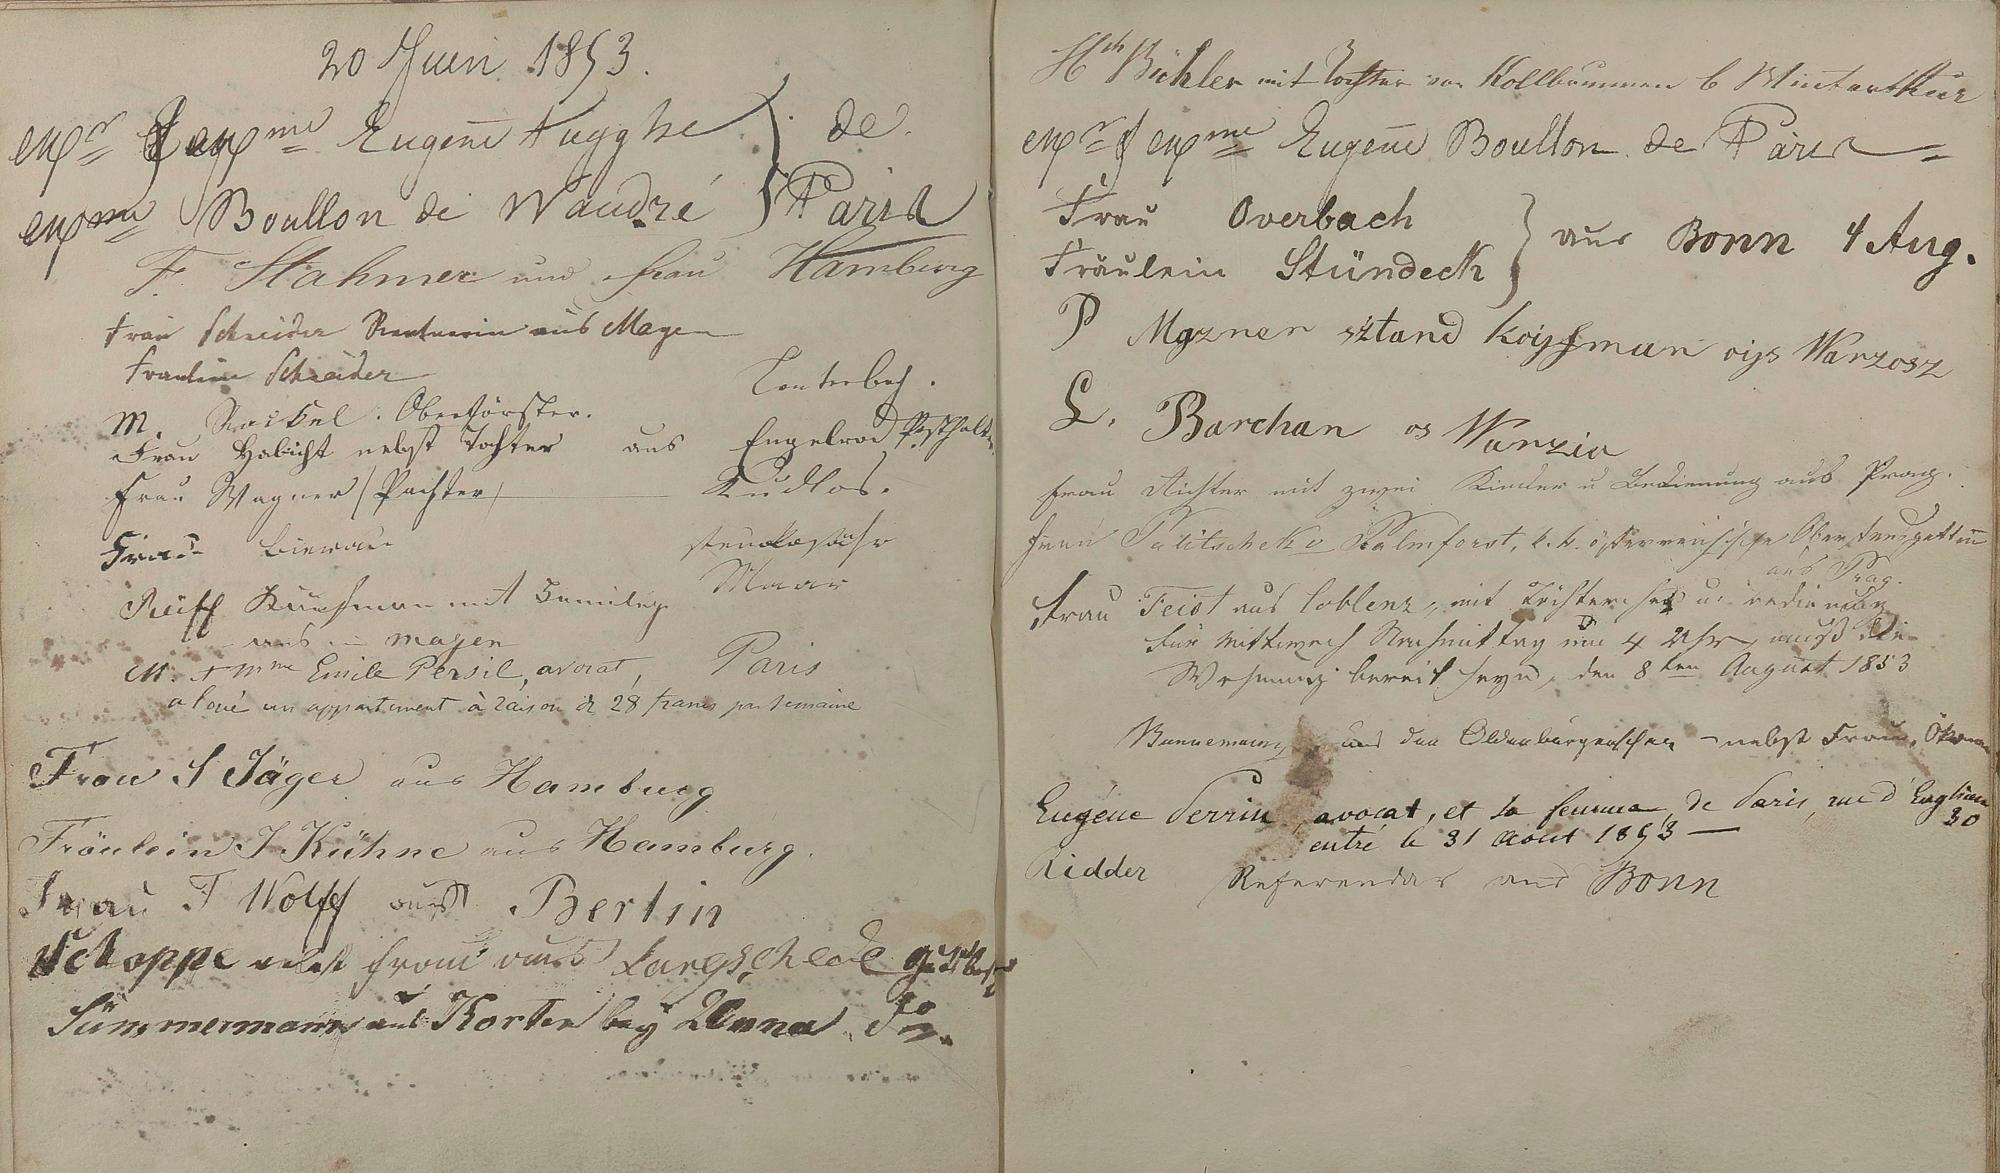 20 Juin 1853.
Mr & Mme Eugène Tugghe } de
Mme Boullon de Waudré } Paris
F. Stahmer und Frau Hamburg
Frau Schneider Rentnerin aus Mayen
Fraulein Schneider
M. Oberförster. Lauterbach.
Frau Habicht nebst Tochter aus Engelrod Posthalt
Frau Wagner (Pachter) Rudlos.
Frau
Maar
Rüff Kaufman mit Familie
aus Mayen
M. + Mme Emile Persil, avocat, Paris
a loué un appartement à raison de 28 francs par semaine
Frau S Jäger aus Hamburg
Fräulein J Kühne aus Hamburg.
Frau F Wolff aus Berlin
Schoppe nebst Frau aus Langschede
Sümmermann aus Korten bey Unna
Hch Bühler mit Tochter von Kollbrunnen b Winterthur
Mr & Mme Eugène Boullon de Paris
Frau Overbach } aus Bonn 4 Aug.
Fräulein Stündeck }
P Mozner sztand Koyfman oiys Warzosz
L. Barchan os Warzia
Frau Richter mit zwei Kinder u Bedienung aus Prag.
Palmforst, k. k. österreichische Oberstensgattin
aus Prag.
Frau Feist aus Coblenz, mit Töchterchen u. Bedienung
für Mittwoch Nachmittag um 4 Uhr, muß die
Wohnung bereit seyn, den 8ten August 1853
aus den Oldenburgenschen nebst Frau,
Eugène Perrin, avocat, et sa femme, de Paris, rue d'Enghien
30
entré le 31 Aout 1853 —
Ridder Referendar aus Bonn